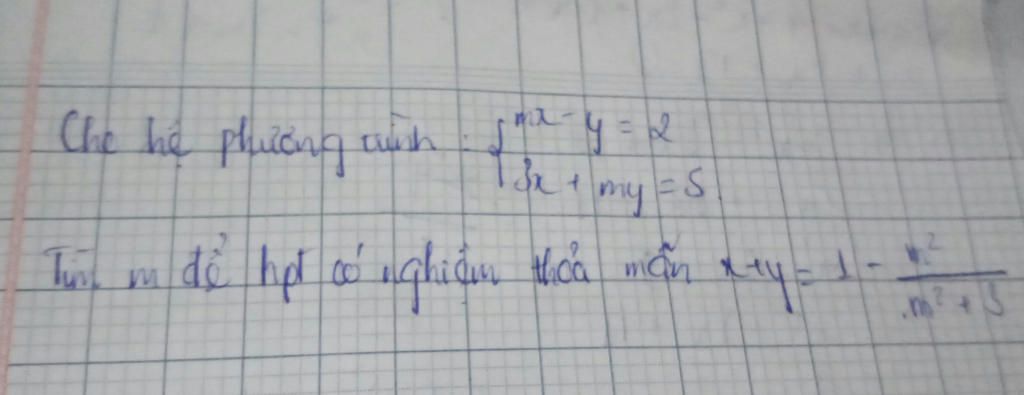 Cho hệ phương trình : { mx - y = 2
3x + my = 5
Tìm m để hpt có nghiệm thỏa mãn x+y = 1 - m²/(m² + 3)